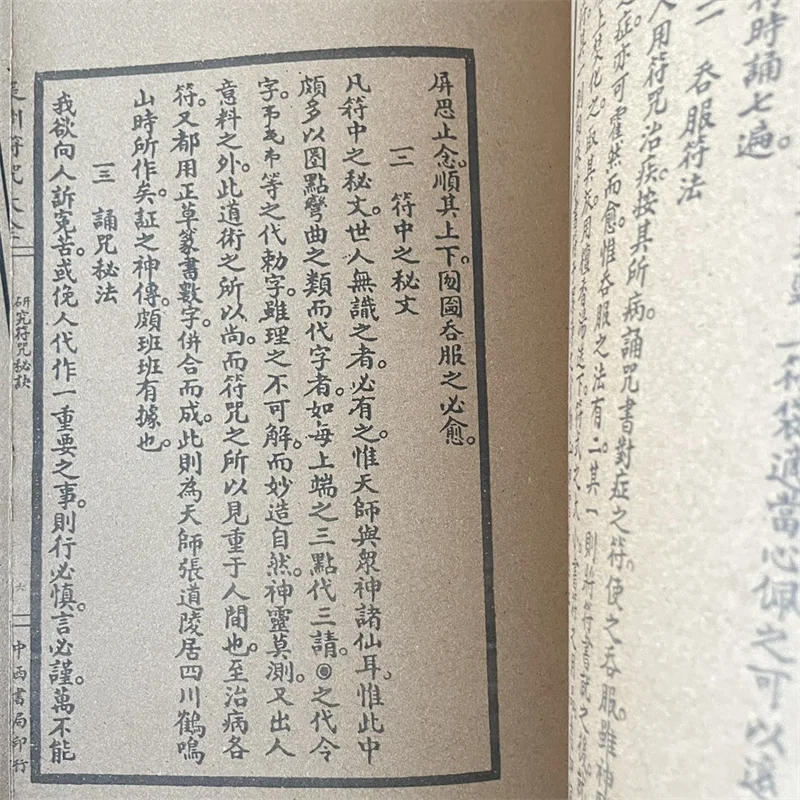 一符袋適當心佩之可以遠
符時誦七遍。
二 吞服符法
人用符咒治疾。按其所病。誦咒書對症之符。使之吞服。雖神
之症亦可霍然而愈。惟吞服之法有二。其一則將符書就之後
上焚化之。取其灰。用檀香湯送下。符式之大小
屏思止念。順其上下。囫圇吞服之必愈。
三 符中之秘文
凡符中之秘文。世人無識之者。必有之。惟天師與眾神諸仙耳。惟此中
頗多以圈點彎曲之類而代字者。如每上端之三點代三請。◉之代令
字。等之代勅字。雖理之不可解。而妙造自然。神靈莫測。又出人
意料之外。此道術之所以尚。而符咒之所以見重于人間也。至治病各
符。又都用正草篆書數字。併合而成。此則為天師張道陵居四川鶴鳴
山時所作矣。証之神傳。頗班班有據也。
三 誦咒秘法
我欲向人訴冤苦。或俛人代作一重要之事。則行必慎。言必謹。萬不能
州符咒大全
研究符咒秘訣
六
中西書局印行